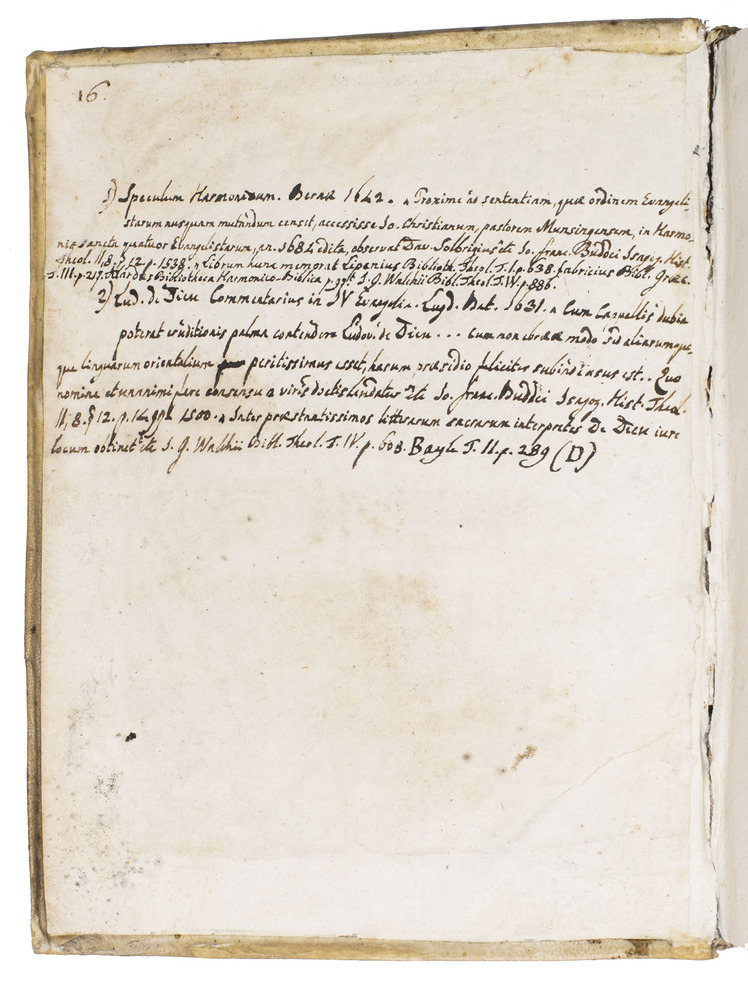 16.
1) Speculum Harmonicum. Bernæ 1642. „ Proxime ad sententiam, quæ ordinem Evangeli-
starum nusquam mutandum censit, accessisse Jo. Christianum, pastorem Munsingensem, in Harmo-
nia sancta quatuor Evangelistarum, an. 1684 edita, observat Dav. Solbrigius etc Jo. franc. Buddei Isagog. Hist.
Theol. II, 8. § 12. p. 1538. „ Librum hunc memorat Lipenius Biblioth. Theol. T. I. p. 638. fabricius Bibl. Græc.
T. III. p. 217. Hardts Bibliotheca Harmonico-Biblia p. J. G. Walchii Bibl. Theol. T. IV. p. 886.
2) Lud. de Dieu Commentarius in IV Evangelia. Lugd. Bat. 1631. „ Cum Capellis dubia
poterat eruditionis palma contendere Ludov. de Dieu ... cum non ebrææ modo sed aliarumque,
que linguarum orientalium peritissimus esset, harum præsidio feliciter subinde usus est.. Quo
nomine et unanimi fere consensu a viris doctis laudatur etc Jo. franc. Buddei Isagog. Hist. Theol.
II, 8. § 12. p. 1500. „ Inter præstantissimos litterarum sacrarum interpretes De Dieu iure
locum obtinet etc J. G. Walchii Bibl. Theol. T. IV. p. 608. Bayle T. II. p. 289 (D)